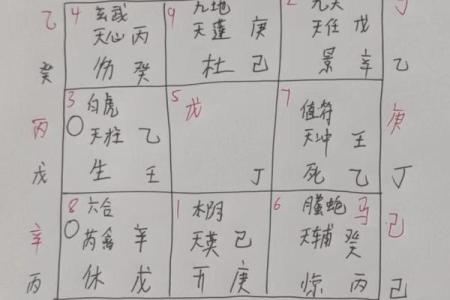 乙 4 玄武 9 九地 2 九天 丁
天心 丙 天蓬 庚 天任 戊
癸 伤 癸 杜 己 景 辛 乙
丙 3 白虎 5 戊 7 值符 庚
天柱 乙 天冲 壬
戊 生 壬 丁 死 乙 丁
辛 8 六合 1 太阴 6 螣蛇 马 己
芮禽 辛 天英 己 天辅 癸
丙 休 戊 开 庚 惊 丙 己